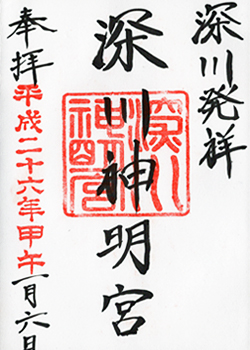 深川発祥
深川神明宮
深川神明宮
奉拝
平成二十六年甲午
一月六日